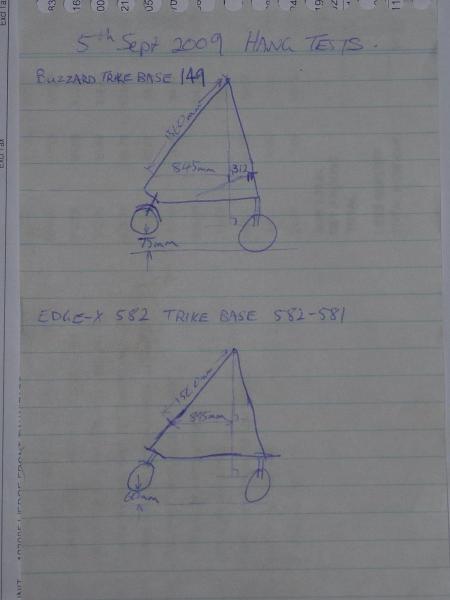 5th Sept 2009 HANG TESTS.
BUZZARD TRIKE BASE 149
1560mm
845mm 312
75mm
EDGE-X 582 TRIKE BASE 582-581
1560mm
895mm
60mm